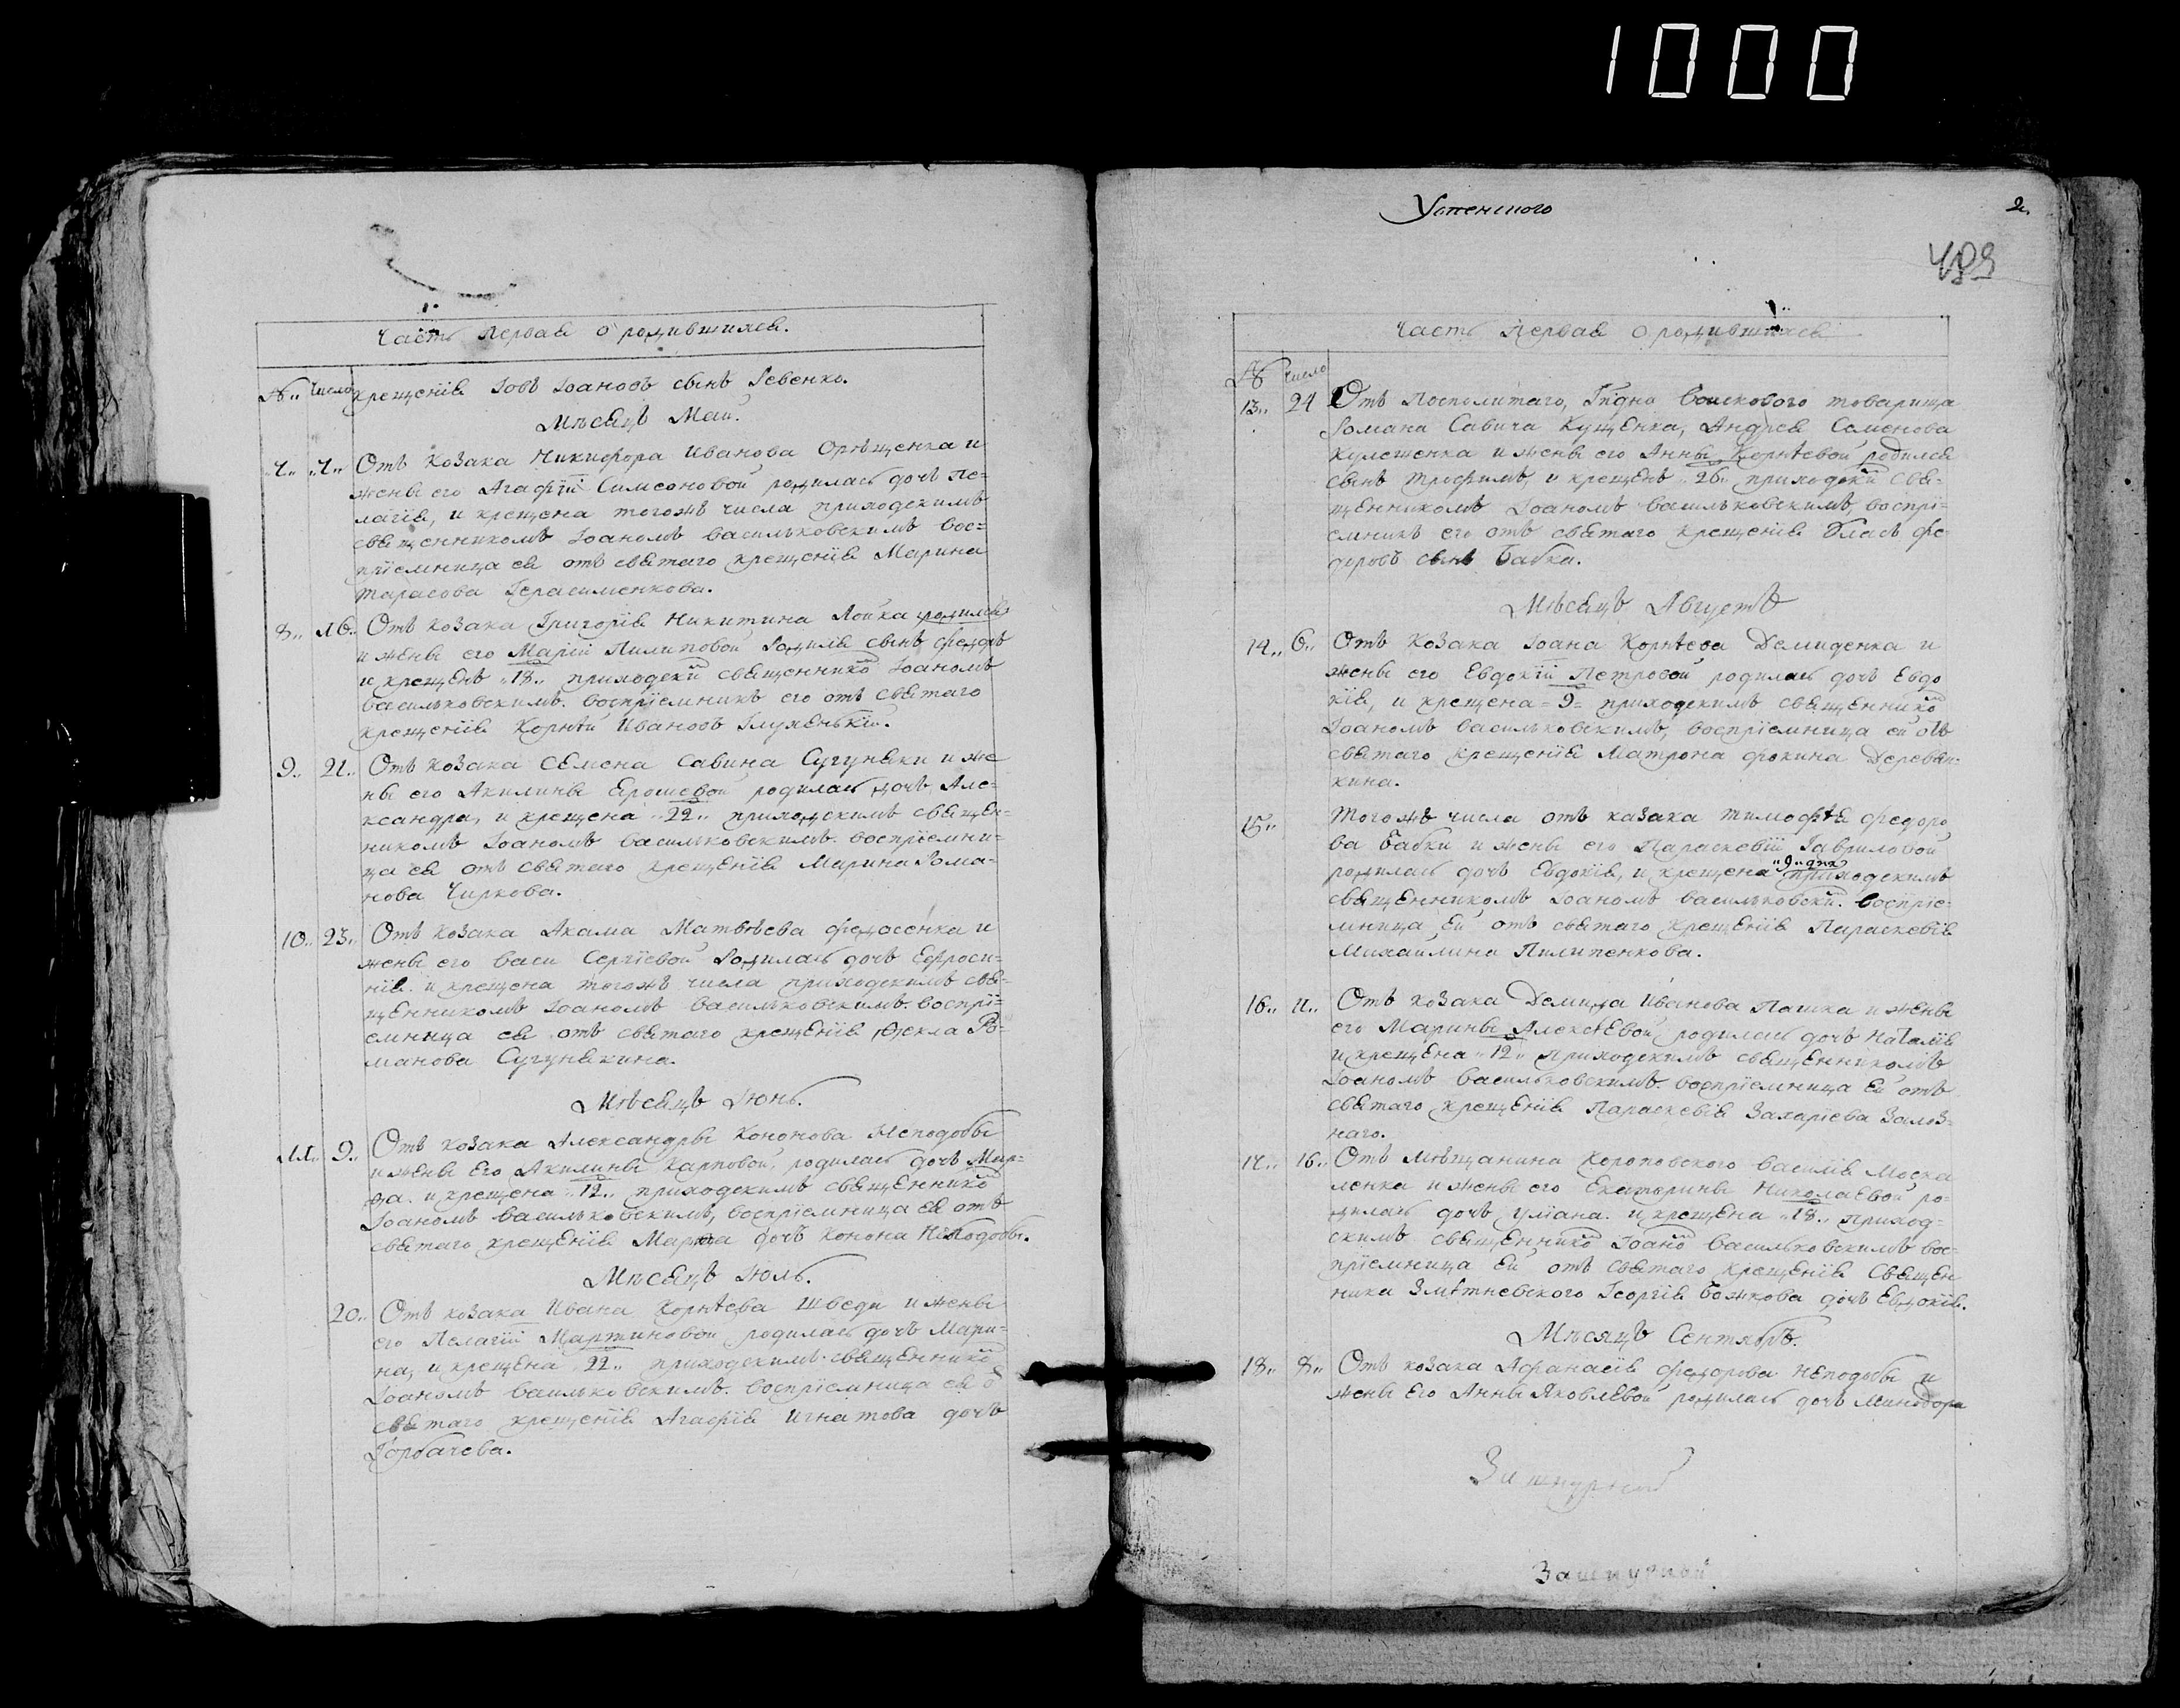 1000
Часть первая о родившихся.
№ Число
крещенія Іовъ Іоановъ сынъ Ревенко.
Мѣсяцъ Май.
7. 7. Отъ козака Никифора Иванова Орѣщенка и
жены его Агафіи Симеоновой родилась дочь Пе=
лагія, и крещена тогожъ числа приходскимъ
священникомъ Іоаномъ Васильковскимъ вос=
пріемница ея отъ святаго крещенія Марина
Тарасова Герасименкова.
8. 16. Отъ козака Григорія Никитина Лойка родился
и жены его Маріи Пилиповой родися сынъ Федоръ
и крещенъ 18. приходски священнико Іоаномъ
Васильковскимъ. воспріемникъ его отъ святаго
крещенія Корнѣй Ивановъ Глухенькій.
9. 21. Отъ козака Семена Савина Сугуняки и же
ны его Акилины Ерошевой родилась дочь Але=
ксандра, и крещена 22. приходскимъ священ=
никомъ Іоаномъ Васильковскимъ. воспріемни=
ца ея отъ святаго крещенія Марина Рома=
нова Чиркова.
10. 23. Отъ козака Акама Матвѣева Федосенка и
жены его Васи Сергіевой родилась дочь Ефроси=
нія. и крещена тогожъ числа приходскимъ свя=
щенникомъ Іоаномъ Васильковскимъ. воспрі=
емница ея отъ святаго крещенія Ѳекла Ро=
манова Сугунякина.
Мѣсяцъ Іюнь.
11. 9. Отъ козака Александры Кононова Неподобы
и жены его Акилины Карповой, родилась дочь Мар=
ѳа. и крещена 12. приходскимъ священнико
Іоаномъ Васильковскимъ, воспріемница ея отъ
святаго крещенія Марѳа дочь Конона Неподобы.
Мѣсяцъ Іюль.
20. Отъ козака Ивана Корнѣева Шведи и жены
его Пелагіи Мартиновой родилась дочь Мари=
на, и крещена 22. приходскимъ священнико
Іоаномъ Васильковскимъ. воспріемница ея о
святаго крещенія Агафія Игнатова дочь
Горбачева.
Успенского
2.
489
Часть первая о родившихся
№ Число
13. 24 Отъ посполитаго, Гпдна войскового товарища
Романа Савича Кущенка, Андрея Семенова
Кулешенка и жены его Анны Корнѣевой родился
сынъ Трофимъ, и крещенъ 26. приходски свя=
щенникомъ Іоаномъ Васильковскимъ, воспрі=
емникъ его отъ святаго крещенія Власъ Фе
доровъ сынъ Бабка.
Мѣсяцъ Августъ
14. 6. Отъ козака Іоана Корнѣева Демиденка и
жены его Евдокіи Петровой родилась дочь Евдо
кія, и крещена = 9 = приходскимъ священнико
Іоаномъ Васильковскимъ, воспріемница ей отъ
святаго крещенія Матрона Фокина Деревян=
кина.
15. Тогожъ числа отъ казака Тимофѣя Федоро
ва Бабки и жены его Параскевіи Гавриловой
родилась дочь Евдокія, и крещена 9. дня приходскимъ
священникомъ Іоаномъ Васильковски. воспріе=
мница ей отъ святаго крещенія Параскевія
Михайлина Пилипенкова.
16. 11. Отъ козака Демида Иванова Пашка и жены
его Марины Алексѣевой родилась дочь Наталія
и крещена 12 приходскимъ священникомъ
Іоаномъ Васильковскимъ. воспріемница ей отъ
святаго крещенія Параскевія Захаріева Залоз=
наго.
17. 16. Отъ мѣщанина Короповского Василія Моска
ленка и жены его Екатерины Николаевой ро=
дилась дочь Уліана. и крещена 18. приход=
скимъ священнико Іоано Васильковскимъ вос=
пріемница ей отъ святаго крещенія священ
ника Змѣтневского Георгія Божкова дочь Евдокія.
Мѣсяцъ Сентябрь.
18. 8. Отъ козака Афанасія Федорова Неподобы и
жены его Анны Яковлевой родилась дочь Минодора
Зашнурной